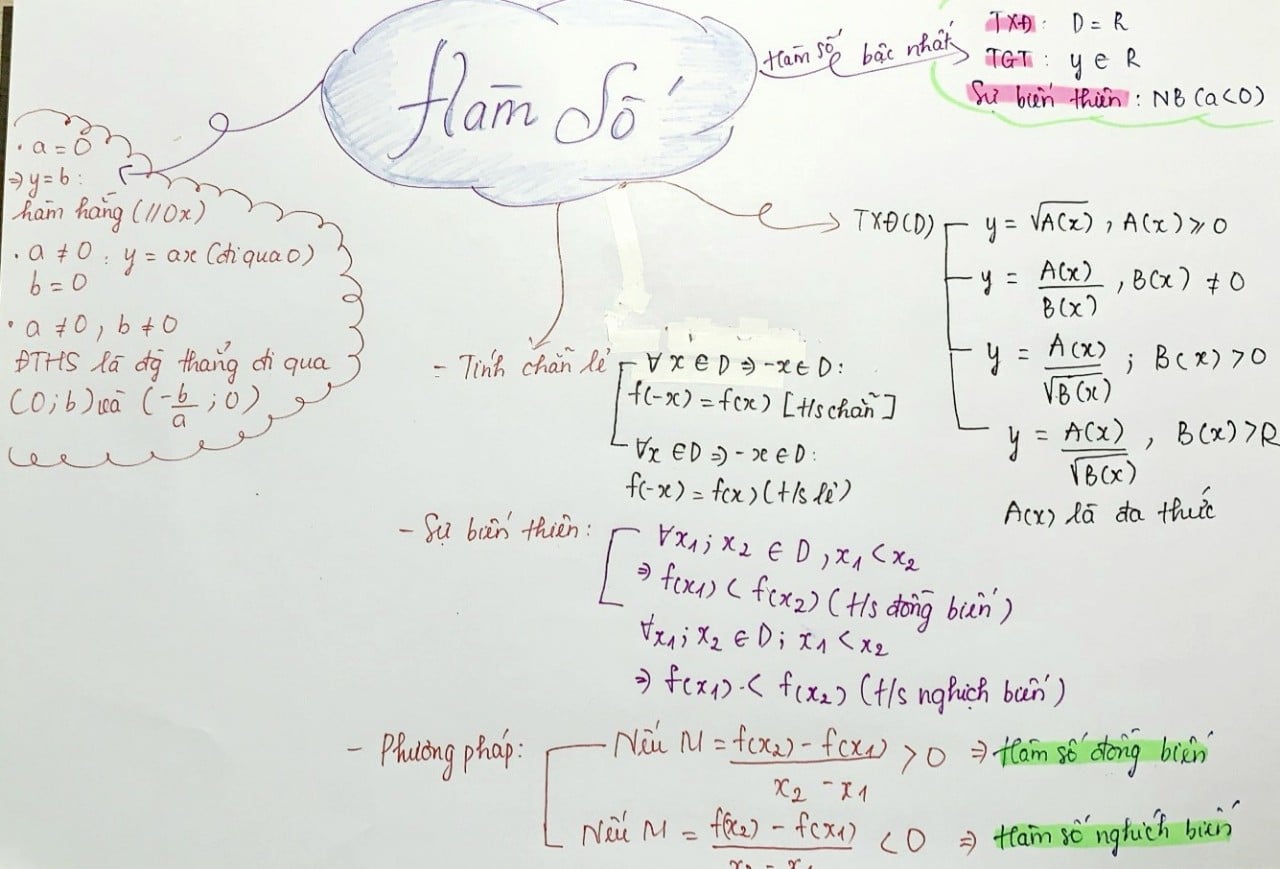 Hàm Số
Hàm số bậc nhất
TXĐ : D = R
TGT : y ∈ R
Sự biến thiên : NB (a<0)
. a = 0
⇒ y = b :
hàm hằng (//Ox)
. a ≠ 0 : y = ax (đi qua 0)
b = 0
. a ≠ 0 , b ≠ 0
ĐTHS là đg thẳng đi qua
(0;b) và (-b/a ; 0)
TXĐ(D)
y = √A(x) , A(x) ⩾ 0
y = A(x)/B(x) , B(x) ≠ 0
y = A(x)/√B(x) ; B(x) > 0
y = A(x)/√B(x) , B(x) > R
A(x) là đa thức
- Tính chẵn lẻ
∀ x ∈ D ⇒ -x ∈ D :
f(-x) = f(x) [H/s chẵn]
∀x ∈ D ⇒ -x ∈ D :
f(-x) = f(x) (H/s lẻ)
- Sự biến thiên :
∀x₁ ; x₂ ∈ D , x₁ < x₂
⇒ f(x₁) < f(x₂) (H/s đồng biến)
∀x₁ ; x₂ ∈ D ; x₁ < x₂
⇒ f(x₁) < f(x₂) (H/s nghịch biến)
- Phương pháp :
Nếu M = f(x₂) - f(x₁)/x₂ - x₁ > 0 ⇒ Hàm số đồng biến
Nếu M = f(x₂) - f(x₁)/x₂ - x₁ < 0 ⇒ Hàm số nghịch biến